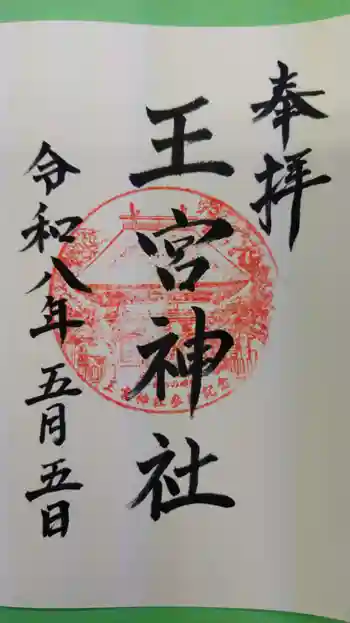 奉拝
王宮神社
令和八年五月五日